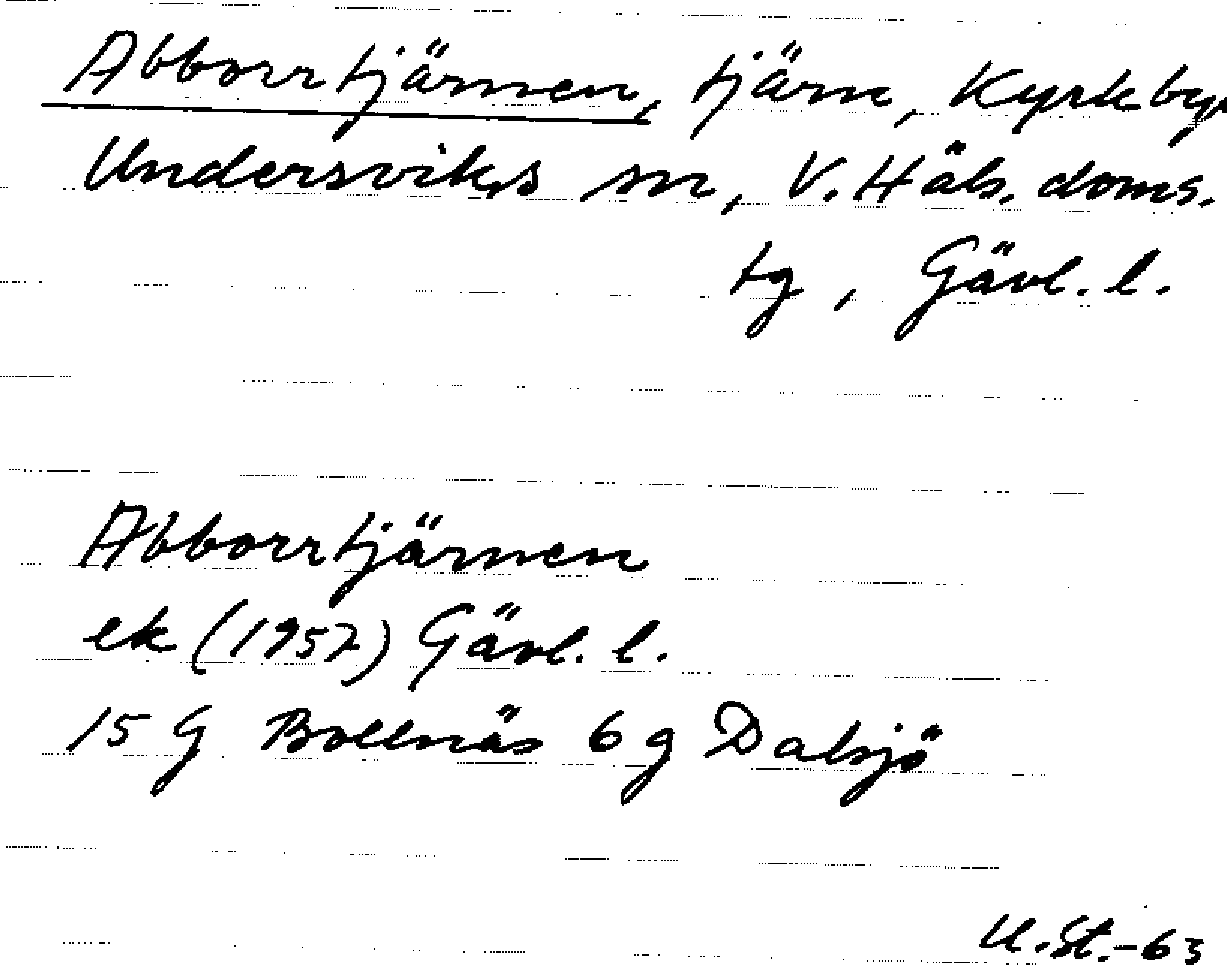 Abborrtjärnen, tjärn, Kyrkbyn
Undersviks sn, V. Häls. doms.
tg, Gävl. l.
Abborrtjärnen
ek (1957) Gävl. l.
15 G Bollnäs 6 g Dalsjö
U. St. -63